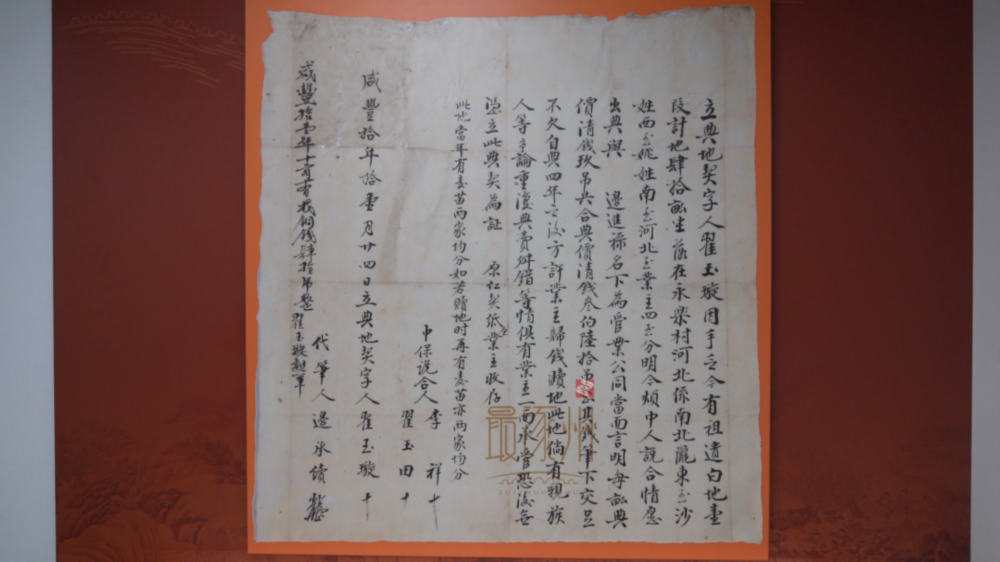 立典地契字人翟玉璇因手乏今有祖遺白地壹
段計地肆拾畝坐落在永樂村河北係南北隴東至沙
姓西至姚姓南至河北至業主四至分明今煩中人説合情愿
出典與 邊進祿名下為管業公同當面言明每畝典
價清錢玖吊共合典價清錢叁伯陸拾吊整其錢筆下交足
不欠自典四年之後方許業主歸錢贖地此地倘有親族
人等爭論重復典賣舛錯等情俱有業主一面承管恐後無
憑立此典契為証 原红契纸業主收存
此地當年有麦苗两家均分如若贖地时再有麦苗亦两家均分
中保説合人李祥十
翟玉田十
咸豐拾年拾壹月廿四日立典地契字人翟玉璇十
代筆人邊永續
咸豐拾壹年十月有找銅錢肆拾吊整翟玉璇親筆